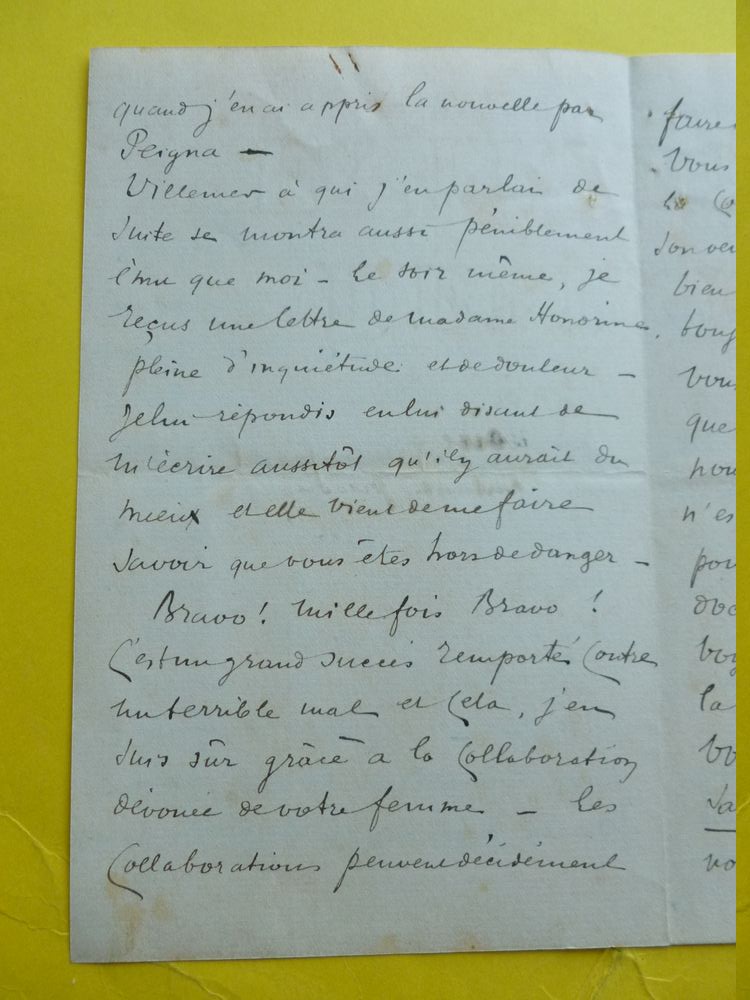 quand j'en ai appris la nouvelle par
Peigna —
Villemer à qui j'en parlai de
suite se montra aussi péniblement
ému que moi – Le soir même, je
reçus une lettre de madame Honorine,
pleine d'inquiétude et de douleur –
Je lui répondis en lui disant de
m'écrire aussitôt qu'il y aurait du
mieux et elle vient de me faire
savoir que vous êtes hors de danger –
Bravo ! mille fois Bravo !
C'est un grand succès remporté contre
un terrible mal et cela, j'en
suis sûr grâce à la collaboration
dévouée de votre femme – Les
collaborations peuvent décidément
faire
Vous
bien
vous
que
n'es
la